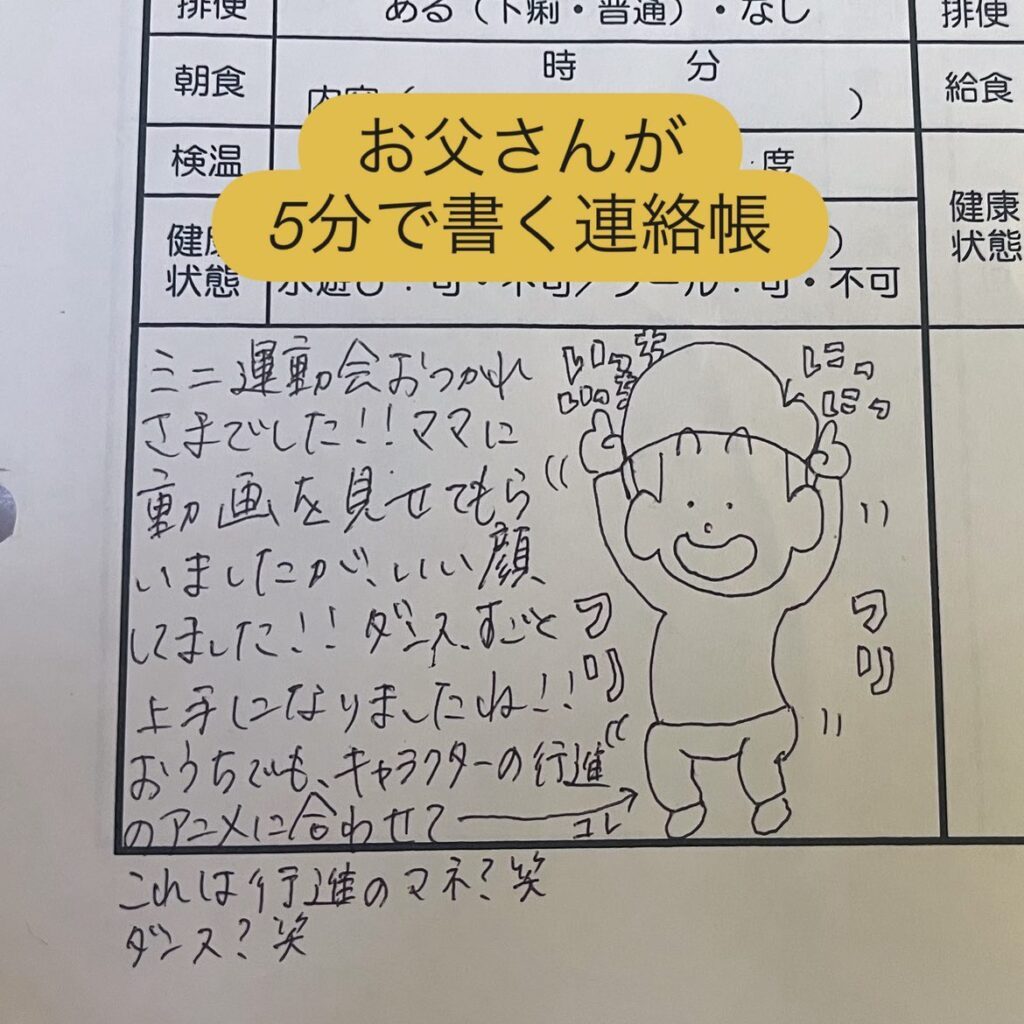 排便
ある（下痢・普通）・なし
排便
朝食
時 分
内容（ ）
給食
検温
度
健康
状態
）
水遊び：可・不可／プール：可・不可
健康
状態
お父さんが
5分で書く連絡帳
ミニ運動会おつかれ
さまでした!!ママに
動画を見せてもら
いましたが、いい顔
してました!!ダンス、すごく
上手になりましたね!!
おうちでも、キャラクターの行進
のアニメに合わせて
コレ
これは行進のマネ?笑
ダンス?笑
いっち
いっち
にっ
にっ
フリ
フリ